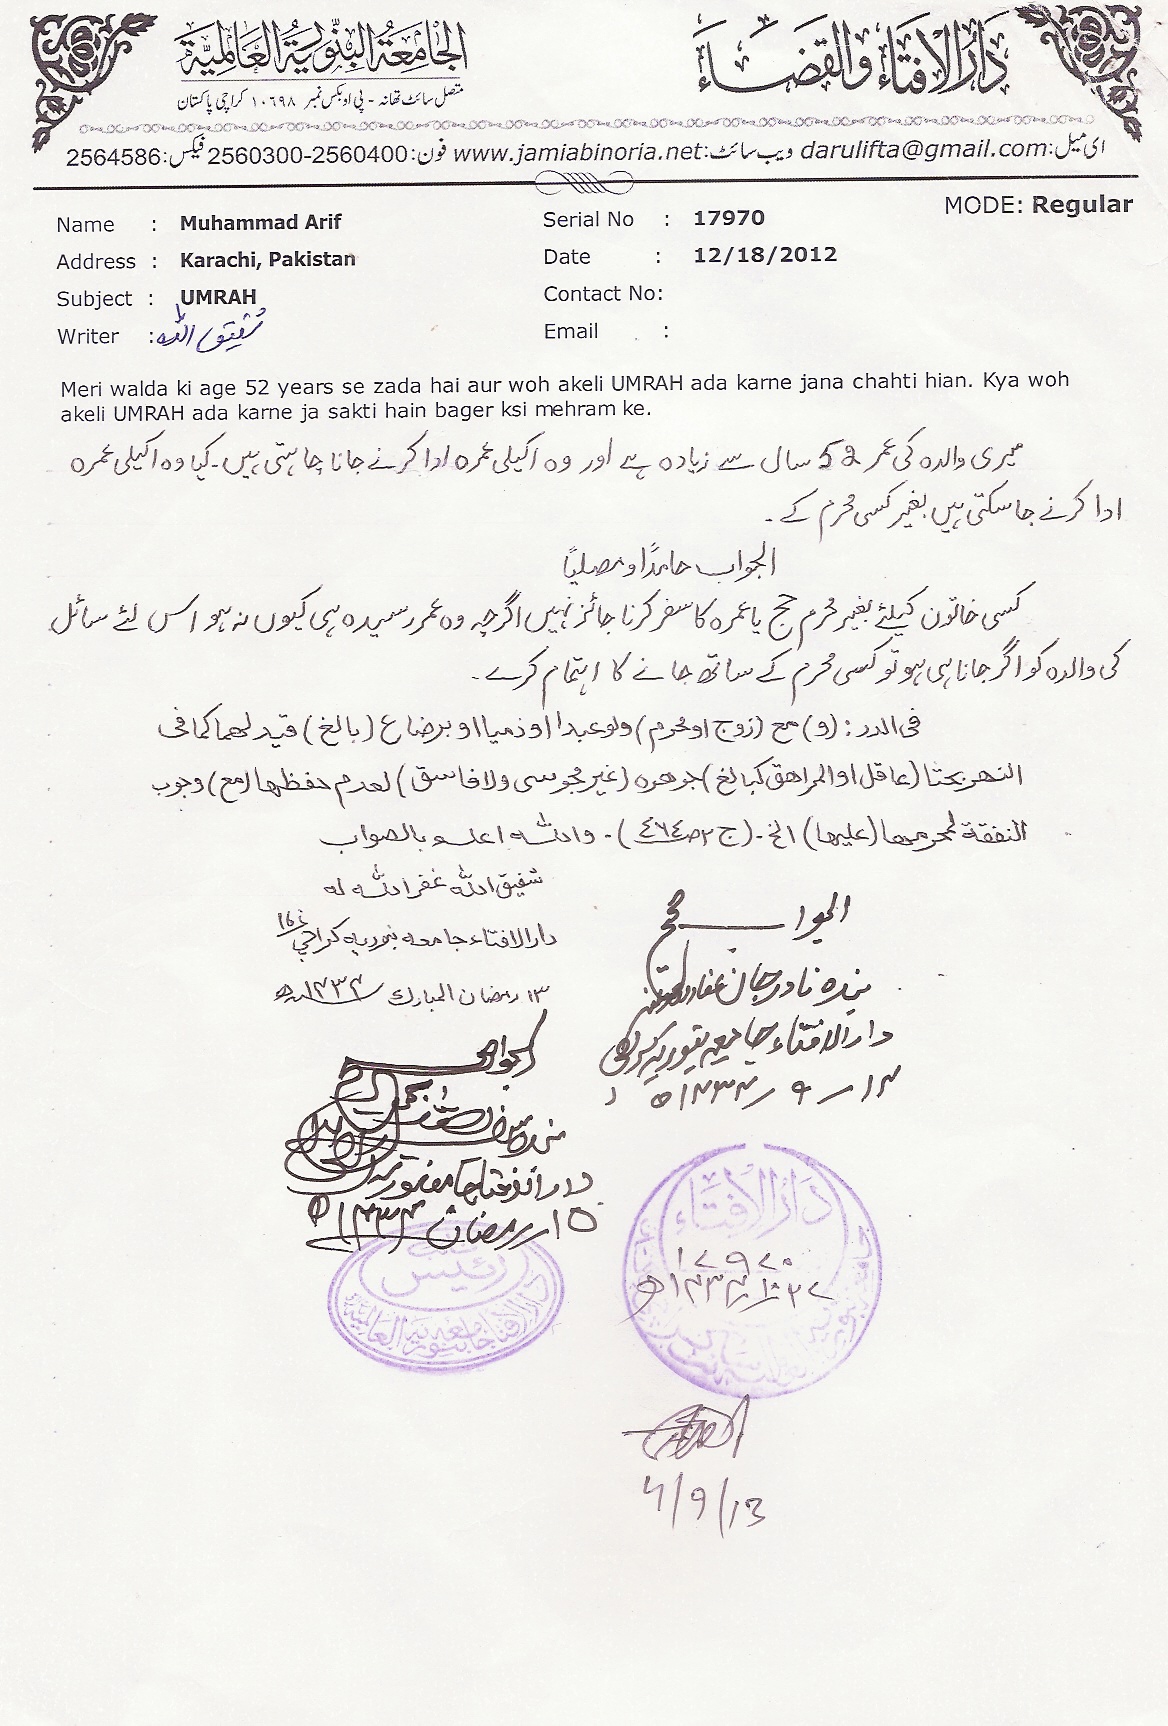 الجامعة البنورية العالمية
دار الافتاء والقضاء
متصل سائٹ تھانہ - پی او بکس نمبر ۱۰۶۹۸ کراچی پاکستان
ای میل:darulifta@gmail.com ویب سائٹ:www.jamiabinoria.net فون:2560300-2560400 فیکس:2564586
MODE: Regular
Name : Muhammad Arif
Serial No : 17970
Address : Karachi, Pakistan
Date : 12/18/2012
Subject : UMRAH
Contact No:
Writer : شفیق اللہ
Email :
Meri walda ki age 52 years se zada hai aur woh akeli UMRAH ada karne jana chahti hian. Kya woh
akeli UMRAH ada karne ja sakti hain bager ksi mehram ke.
میری والدہ کی عمر 52 سال سے زیادہ ہے اور وہ اکیلی عمرہ ادا کرنے جانا چاہتی ہیں۔ کیا وہ اکیلی عمرہ
ادا کرنے جا سکتی ہیں بغیر کسی محرم کے۔
الجواب حامدًا و مصلیًا
کسی خاتون کیلئے بغیر محرم حج یا عمرہ کا سفر کرنا جائز نہیں اگرچہ وہ عمر رسیدہ ہی کیوں نہ ہو اس لئے سائل
کی والدہ کو اگر جانا ہی ہو تو کسی محرم کے ساتھ جانے کا اہتمام کرے۔
فی الدر: (و) مع (زوج او محرم) ولو عبدا او ذمیا او برضاع (بالغ) قید لهما کما فی
النهر بحثا (عاقل او المراهق کبالغ) جوهرہ (غیر مجوسی ولا فاسق) لعدم حفظها (مع) وجوب
النفقة لمحرمها (علیها) الخ۔ (ج ۲ ص ٤٦٤)۔ واللہ اعلم بالصواب
شفیق اللہ غفر اللہ لہ
دار الافتاء جامعہ بنوریہ کراچی
۱۳ رمضان المبارک ۱۴۳۴ھ
الجواب صحیح
بندہ نادر جان
دار الافتاء جامعہ بنوریہ کراچی
۱۴ ر ۹ ر ۱۴۳۴ ھ
الجواب صحیح
۱۵ ر رمضان ۱۴۳۴ ھ
رئیس
دار الافتاء جامعہ بنوریہ العالمیہ
دار الافتاء
۱۷۹۷۰
4/9/13